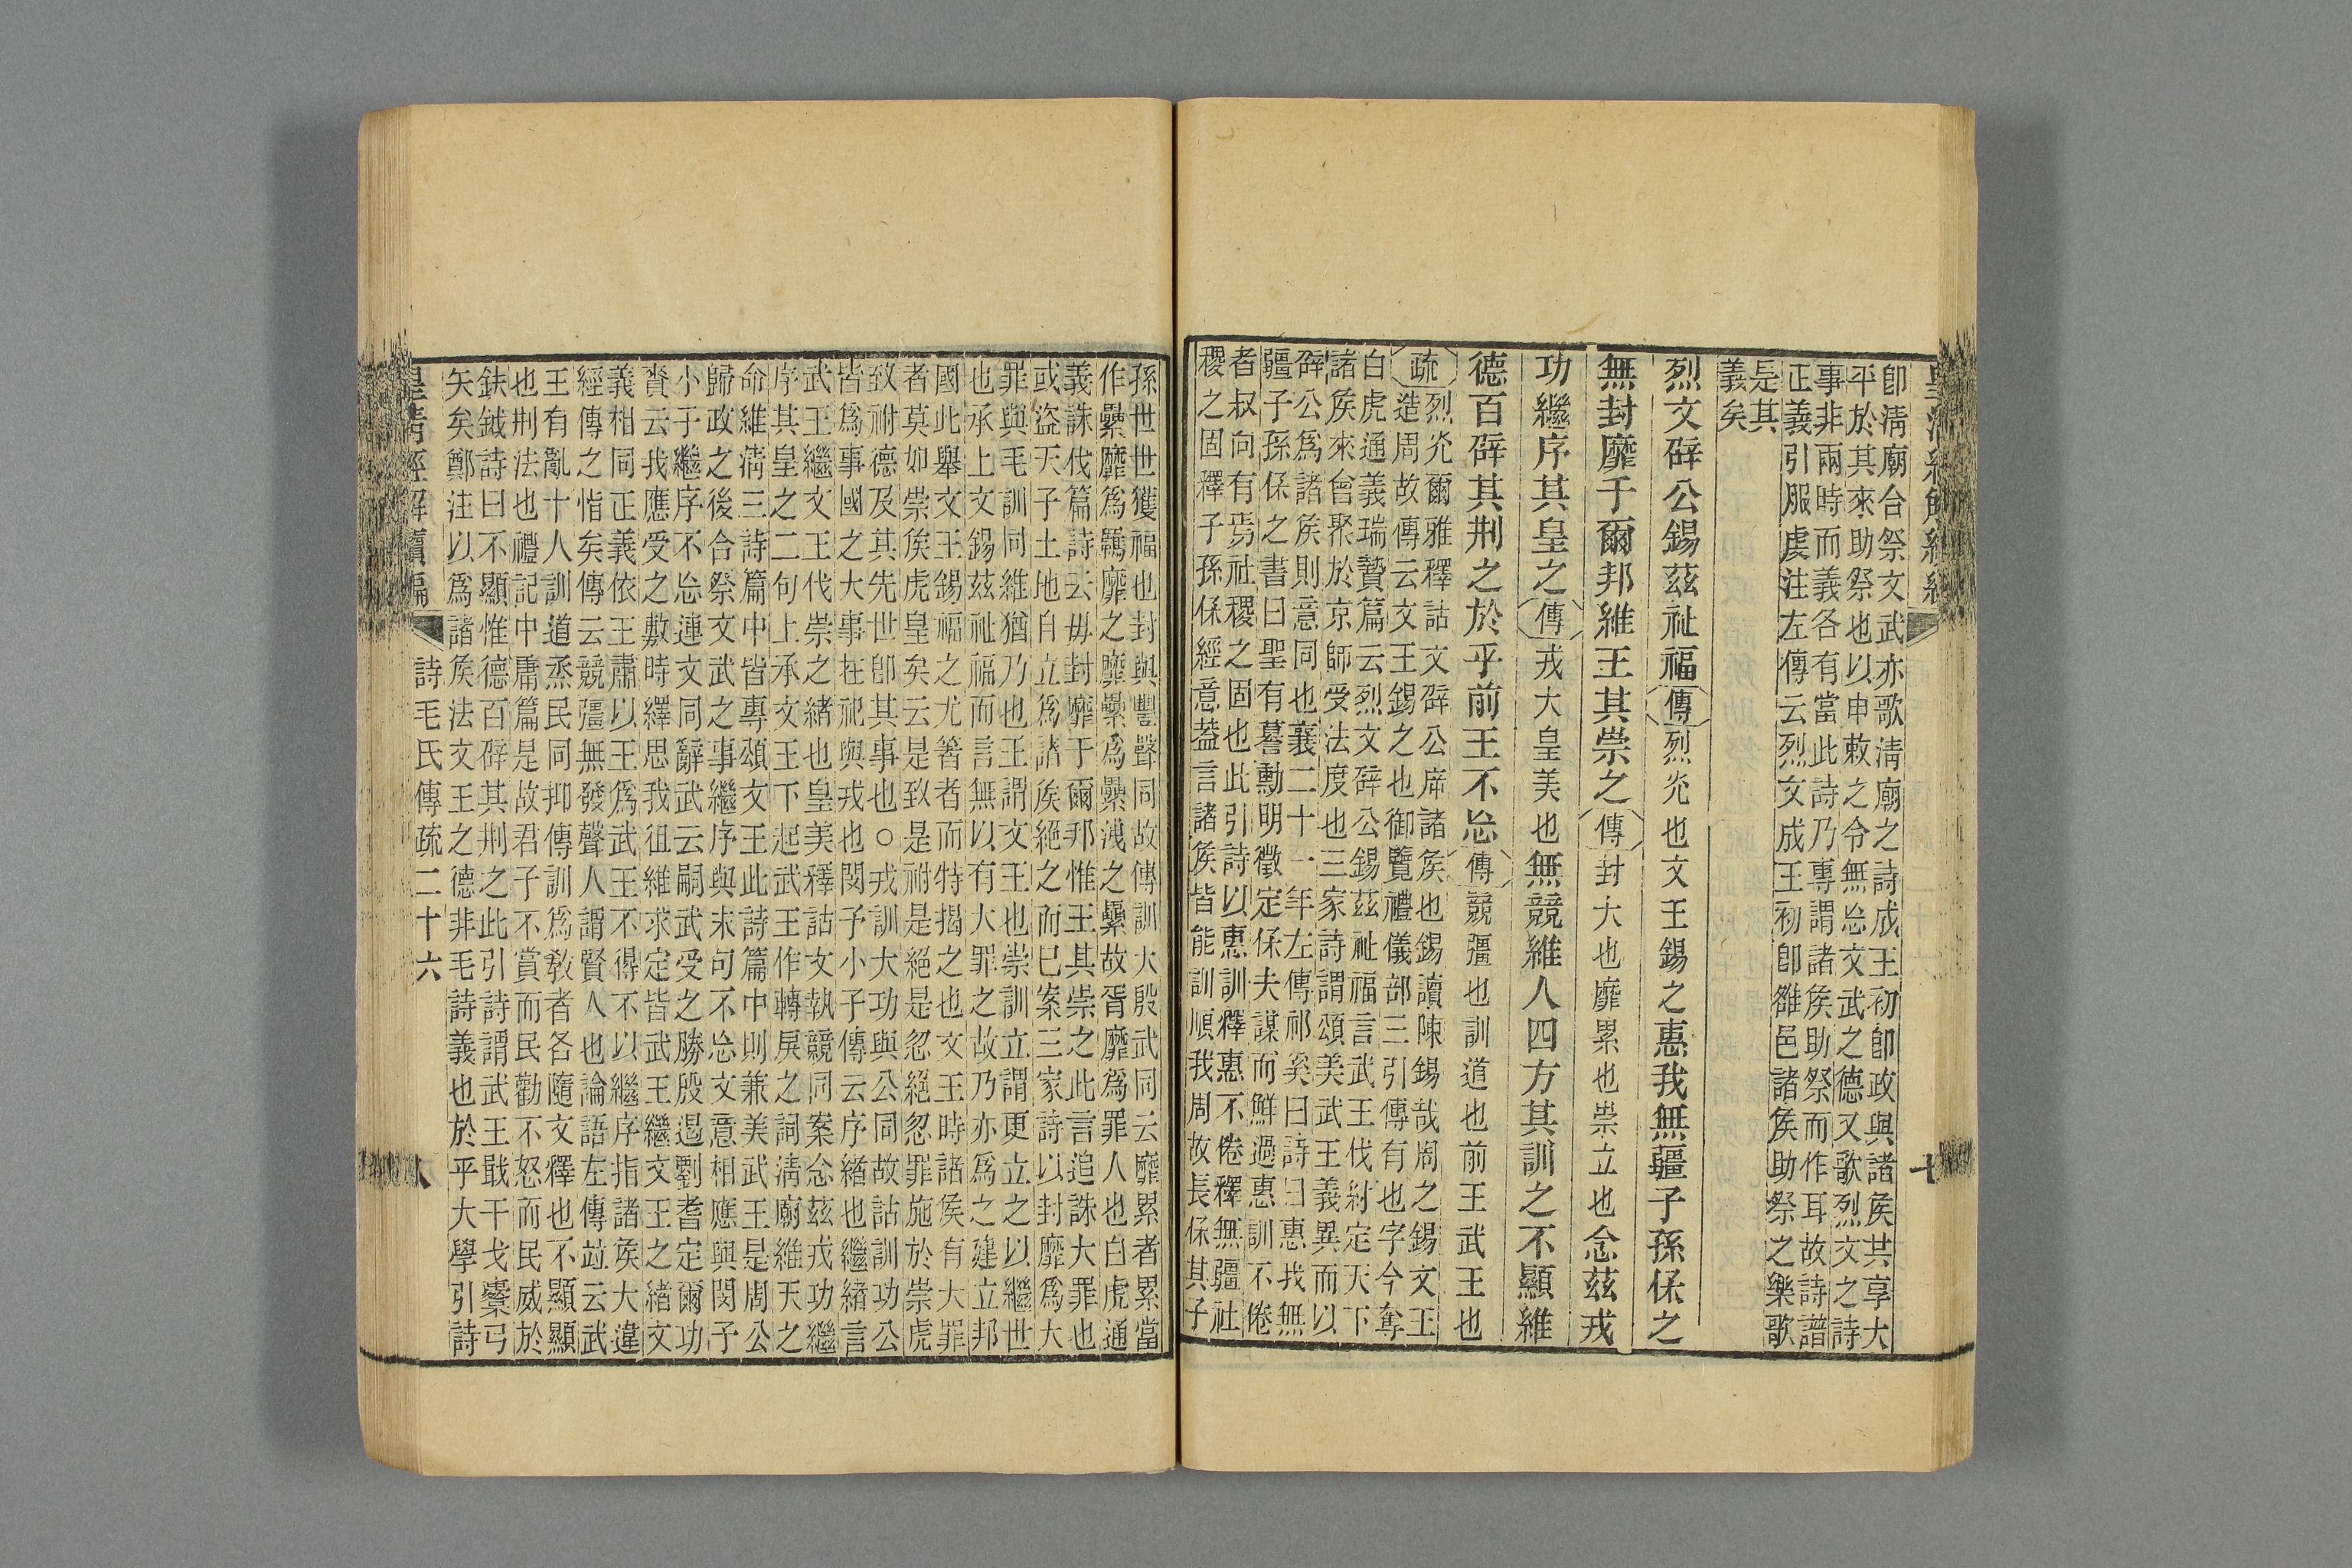 卽淸廟合祭文武亦歌淸廟之詩成王初卽政與諸矦其享大
平於其來助祭也以申敕之令無忘文武之德又歌烈文之詩
事非兩時而義各有當此詩乃專謂諸矦助祭而作耳故詩譜
正義引服虔注左傳云烈文成王初卽雒邑諸矦助祭之樂歌
是其
義矣
烈文辟公錫茲祉福傳烈光也文王錫之惠我無疆子孫保之
無封靡于爾邦維王其崇之傳封大也靡累也崇立也念茲戎
功繼序其皇之傳戎大皇美也無競維人四方其訓之不顯維
德百辟其刑之於乎前王不忘傳競彊也訓道也前王武王也
疏烈光爾雅釋詁文辟公席諸矦也錫讀陳錫哉周之錫文王
造周故傳云文王錫之也御覽禮儀部三引傳有也字今奪
白虎通義瑞贄篇云烈文辟公錫茲祉福言武王伐紂定天下
諸矦來會聚於京師受法度也三家詩謂頌美武王義異而以
辟公爲諸矦則意同也襄二十一年左傳祁奚曰詩曰惠我無
疆子孫保之書曰聖有謩勳明徵定保夫謀而鮮過惠訓不倦
者叔向有焉社稷之固也此引詩以惠訓釋惠不倦釋無疆社
稷之固釋子孫保經意葢言諸矦皆能訓順我周故長保其子
孫世世獲福也封與豐聲同故傳訓大殷武同云靡累者累當
作纍靡爲羈靡之靡纍爲纍洩之纍故胥靡爲罪人也白虎通
義誅伐篇詩云毋封靡于爾邦惟王其崇之此言追誅大罪也
或盜天子土地自立爲諸矦絕之而已案三家詩以封靡爲大
罪與毛訓同維猶乃也王謂文王也崇訓立謂更立之以繼世
也承上文錫茲祉福而言無以有大罪之故乃亦爲之建立邦
國此舉文王錫福之尤箸者而特揭之也文王時諸侯有大罪
者莫如崇矦虎皇矣云是致是祔是絕是忽絕忽罪施於崇虎
致祔德及其先世卽其事也○戎訓大功與公同故詁訓功公
皆爲事國之大事在祀與戎也閔子小子傳云序緒也繼緒言
武王繼文王伐崇之緒也皇美釋詁文執競同案念茲戎功繼
序其皇之二句上承文王下起武王作轉戾之詞淸廟維天之
命維淸三詩篇中皆專頌文王此詩篇中則兼美武王是周公
歸政之後合祭文武之事繼序與末句不忘文意相應與閔子
小子繼序不忘連文同辭武云嗣武受之勝殷遏劉耆定爾功
賚云我應受之敷時繹思我徂維求定皆武王繼文王之緒文
義相同正義依王肅以王爲武王不得不以繼序指諸矦大違
經傳之恉矣傳云競彊無發聲人謂賢人也論語左傳竝云武
王有亂十人訓道烝民同抑傳訓爲敎者各隨文釋也不顯顯
也刑法也禮記中庸篇是故君子不賞而民勸不怒而民威於
鈇鉞詩曰不顯惟德百辟其刑之此引詩謂武王戢干戈櫜弓
矢矣鄭注以爲諸矦法文王之德非毛詩義也於乎大學引詩
皇清經解續編 詩毛氏傳疏二十六 八